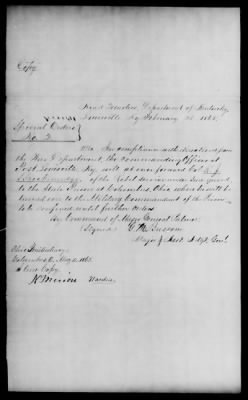 Copy
Head Quarters, Department of Kentucky
Louisville Ky February 1865
Special Orders
No 2
In compliance with directions from
the War Department, the commanding Officer at
Post Louisville Ky. will at once forward Col
of the Rebel service under guard
to the State Prison at Columbus, Ohio where he will be
turned over to the Military Commandant of the Prison
to be confined until further orders
By Command of Major General Palmer
(Signed)
Major & Asst. Adjt. Genl
Ohio Penitentiary
Columbus O. May 1865
A true Copy
Warden